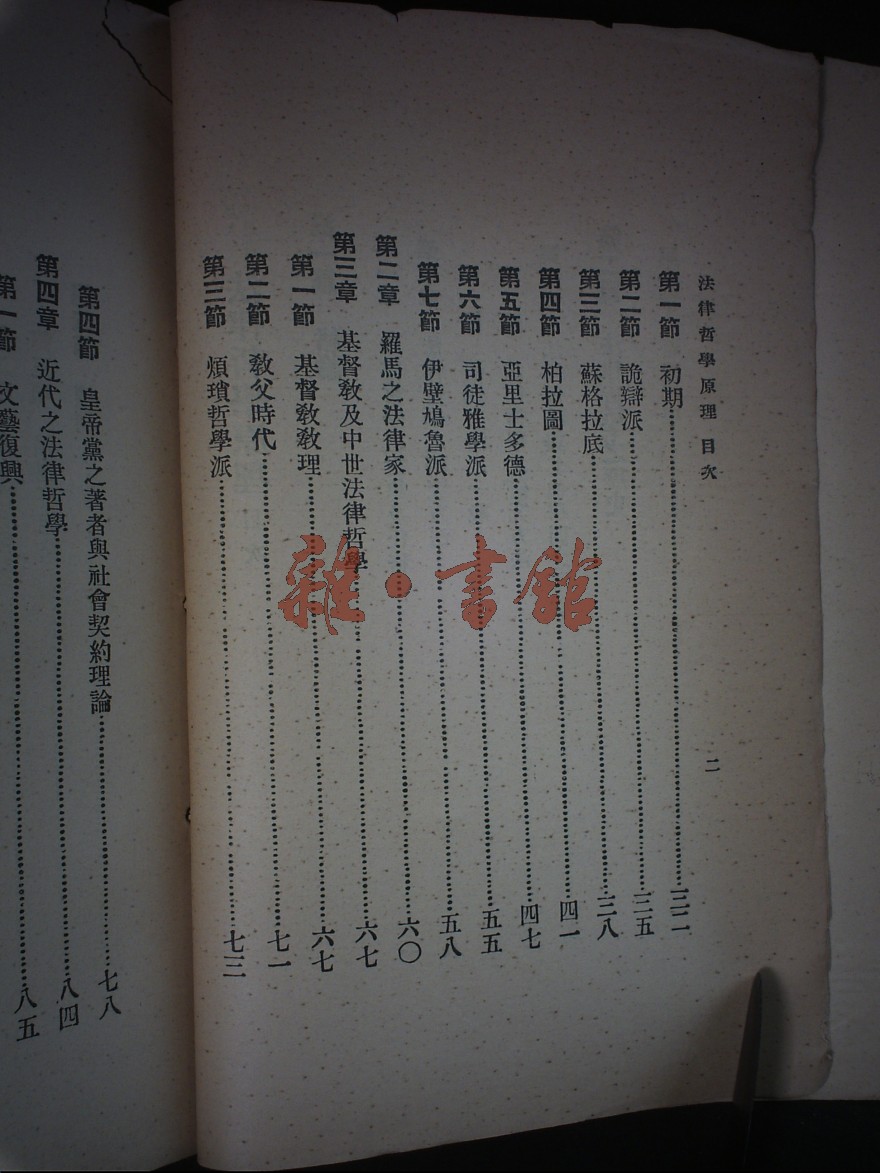 法律哲學原理 目次
二
第一節 初期……三二
第二節 詭辯派……三五
第三節 蘇格拉底……三八
第四節 柏拉圖……四一
第五節 亞里士多德……四七
第六節 司徒雅學派……五五
第七節 伊壁鳩魯派……五八
第二章 羅馬之法律家……六〇
第三章 基督教及中世法律哲學……六七
第一節 基督教教理……六七
第二節 教父時代……七一
第三節 煩瑣哲學派……七三
第四節 皇帝黨之著者與社會契約理論……七八
第四章 近代之法律哲學……八四
第一節 文藝復興……八五
雜·書館